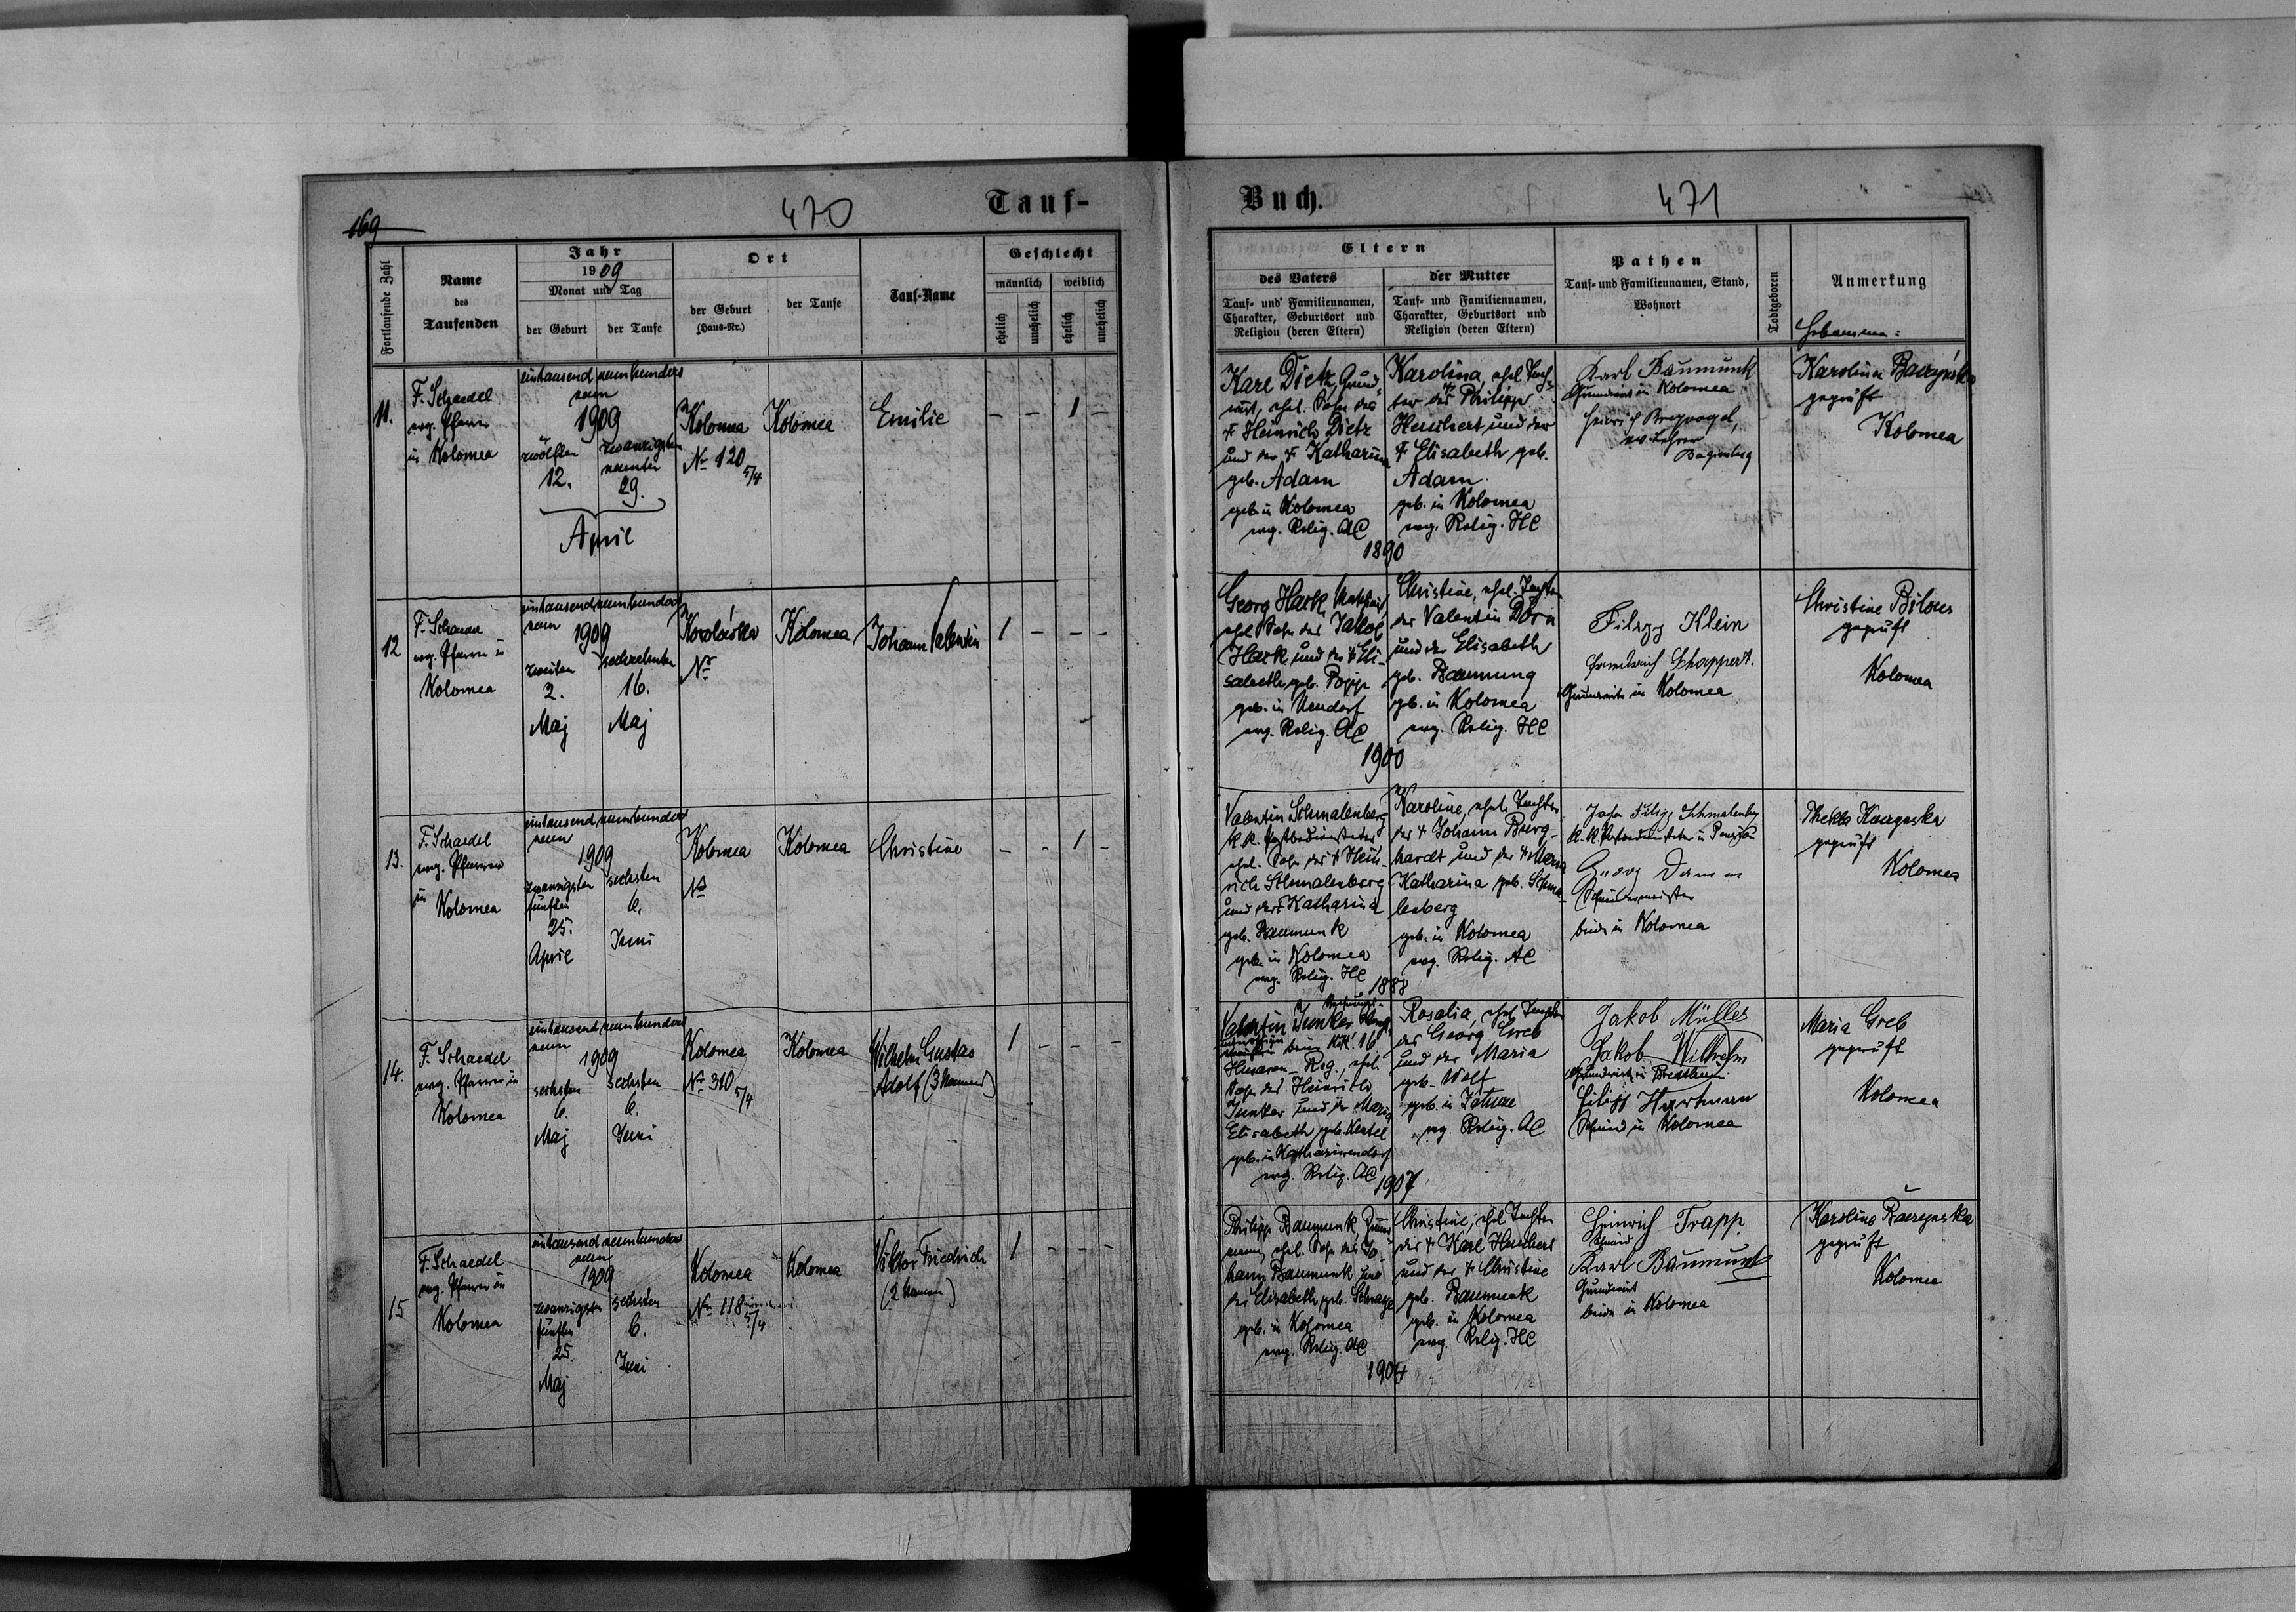 169
470
Tauf-
Fortlaufende Zahl
Name
des
Taufenden
Jahr
1909
Monat und Tag
der Geburt
der Taufe
Ort
der Geburt
(Haus-Nr.)
der Taufe
Tauf-Name
Geschlecht
männlich
weiblich
ehelich
unehelich
ehelich
unehelich
11.
F. Schaedel
evg. Pfarrer
in Kolomea
eintausend neunhundert
neun
1909
zwölften
12.
zwanzigsten
neunten
29.
April
Kolomea
Nr 120
5/4
Kolomea
Emilie
– – 1 –
12
evg. Pfarrer in
Kolomea
eintausend neunhundert
neun
1909
zweiten
2.
Maj
sechzehnten
16.
Maj
Nr
Kolomea
Johann Valentin
1 – – –
13.
F. Schaedel
evg. Pfarrer
in
Kolomea
eintausend neunhundert
neun
1909
zwanzigsten
fünften
25.
April
sechsten
6.
Juni
Kolomea
Nr
Kolomea
Christine
– – 1 –
14.
F. Schaedel
evg. Pfarrer in
Kolomea
eintausend neunhundert
neun
1909
sechsten
6.
Maj
sechsten
6.
Juni
Kolomea
Nr 310
5/4
Kolomea
Wilhelm Gustav
Adolf (3 Namen)
1 – – –
15
F. Schaedel
evg. Pfarrer in
Kolomea
eintausend neunhundert
neun
1909
zwanzigsten
fünften
25.
Maj
sechsten
6.
Juni
Kolomea
Nr 118
5/4
Kolomea
Viktor Friedrich
(2 Namen)
1 – – –
Buch.
471
Eltern
des Vaters
Tauf- und Familiennamen,
Charakter, Geburtsort und
Religion (deren Eltern)
der Mutter
Tauf- und Familiennamen,
Charakter, Geburtsort und
Religion (deren Eltern)
Pathen
Tauf- und Familiennamen, Stand,
Wohnort
Todtgeboren
Anmerkung
Hebamme:
Karl Dietz, Grund-
wirt, ehel. Sohn des
† Heinrich Dietz
und der † Katharina
geb. Adam
geb. in Kolomea
evg. Relig. AC
Karolina, ehel. Toch-
ter des † Philipp
und der
† Elisabeth geb.
Adam
geb. in Kolomea
evg. Relig. HC
1890
Karl Baumunk
Grundwirt in Kolomea
Heinrich
ev. Lehrer
Baginsberg
Karolina
geprüft
Kolomea
Georg Hark
ehel. Sohn des Jakob
Hark und der † Eli-
sabeth, geb. Popp
geb. in
evg. Relig. AC
Christine, ehel. Tochter
des Valentin Dorn
und der Elisabeth
geb.
geb. in Kolomea
evg. Relig. HC
1900
Filipp Klein
Grundwirte in Kolomea
Christine Bilous
geprüft
Kolomea
Valentin Schmalenberg
k.k. Postbediensteter
ehel. Sohn des † Hein-
rich Schmalenberg
und der † Katharina
geb. Baumunk
geb. in Kolomea
evg. Relig. HC
Karoline, ehel. Tochter
des † Johann Burg-
hardt und der † Maria
Katharina geb. Schma-
lenberg
geb. in Kolomea
evg. Relig. AC
1888
Filipp Schmalenberg
Georg
beide in Kolomea
Thekla
geprüft
Kolomea
Valentin Junker
beim k.k. 16
Husaren-Reg., ehel.
Sohn des Heinrich
Junker und der Maria
Elisabeth geb.
geb. in Katharinendorf
evg. Relig. AC
Rosalia, ehel. Tochter
des Georg Greb
und der Maria
geb. Wolf
geb. in
evg. Relig. AC
1907
Jakob Müller
Jakob Wilhelm
Grundwirt in Bredtheim
Filipp Hartmann
Schmied in Kolomea
Maria Greb
geprüft
Kolomea
Philipp Baumunk,
ehel. Sohn des Jo-
hann Baumunk und
der Elisabeth geb.
geb. in Kolomea
evg. Relig. AC
Christine, ehel. Tochter
des † Karl
und der † Christine
geb. Baumunk
geb. in Kolomea
evg. Relig. HC
1904
Heinrich Trapp
Schmied
Karl Baumunk
Grundwirt
beide in Kolomea
Karolina
geprüft
Kolomea